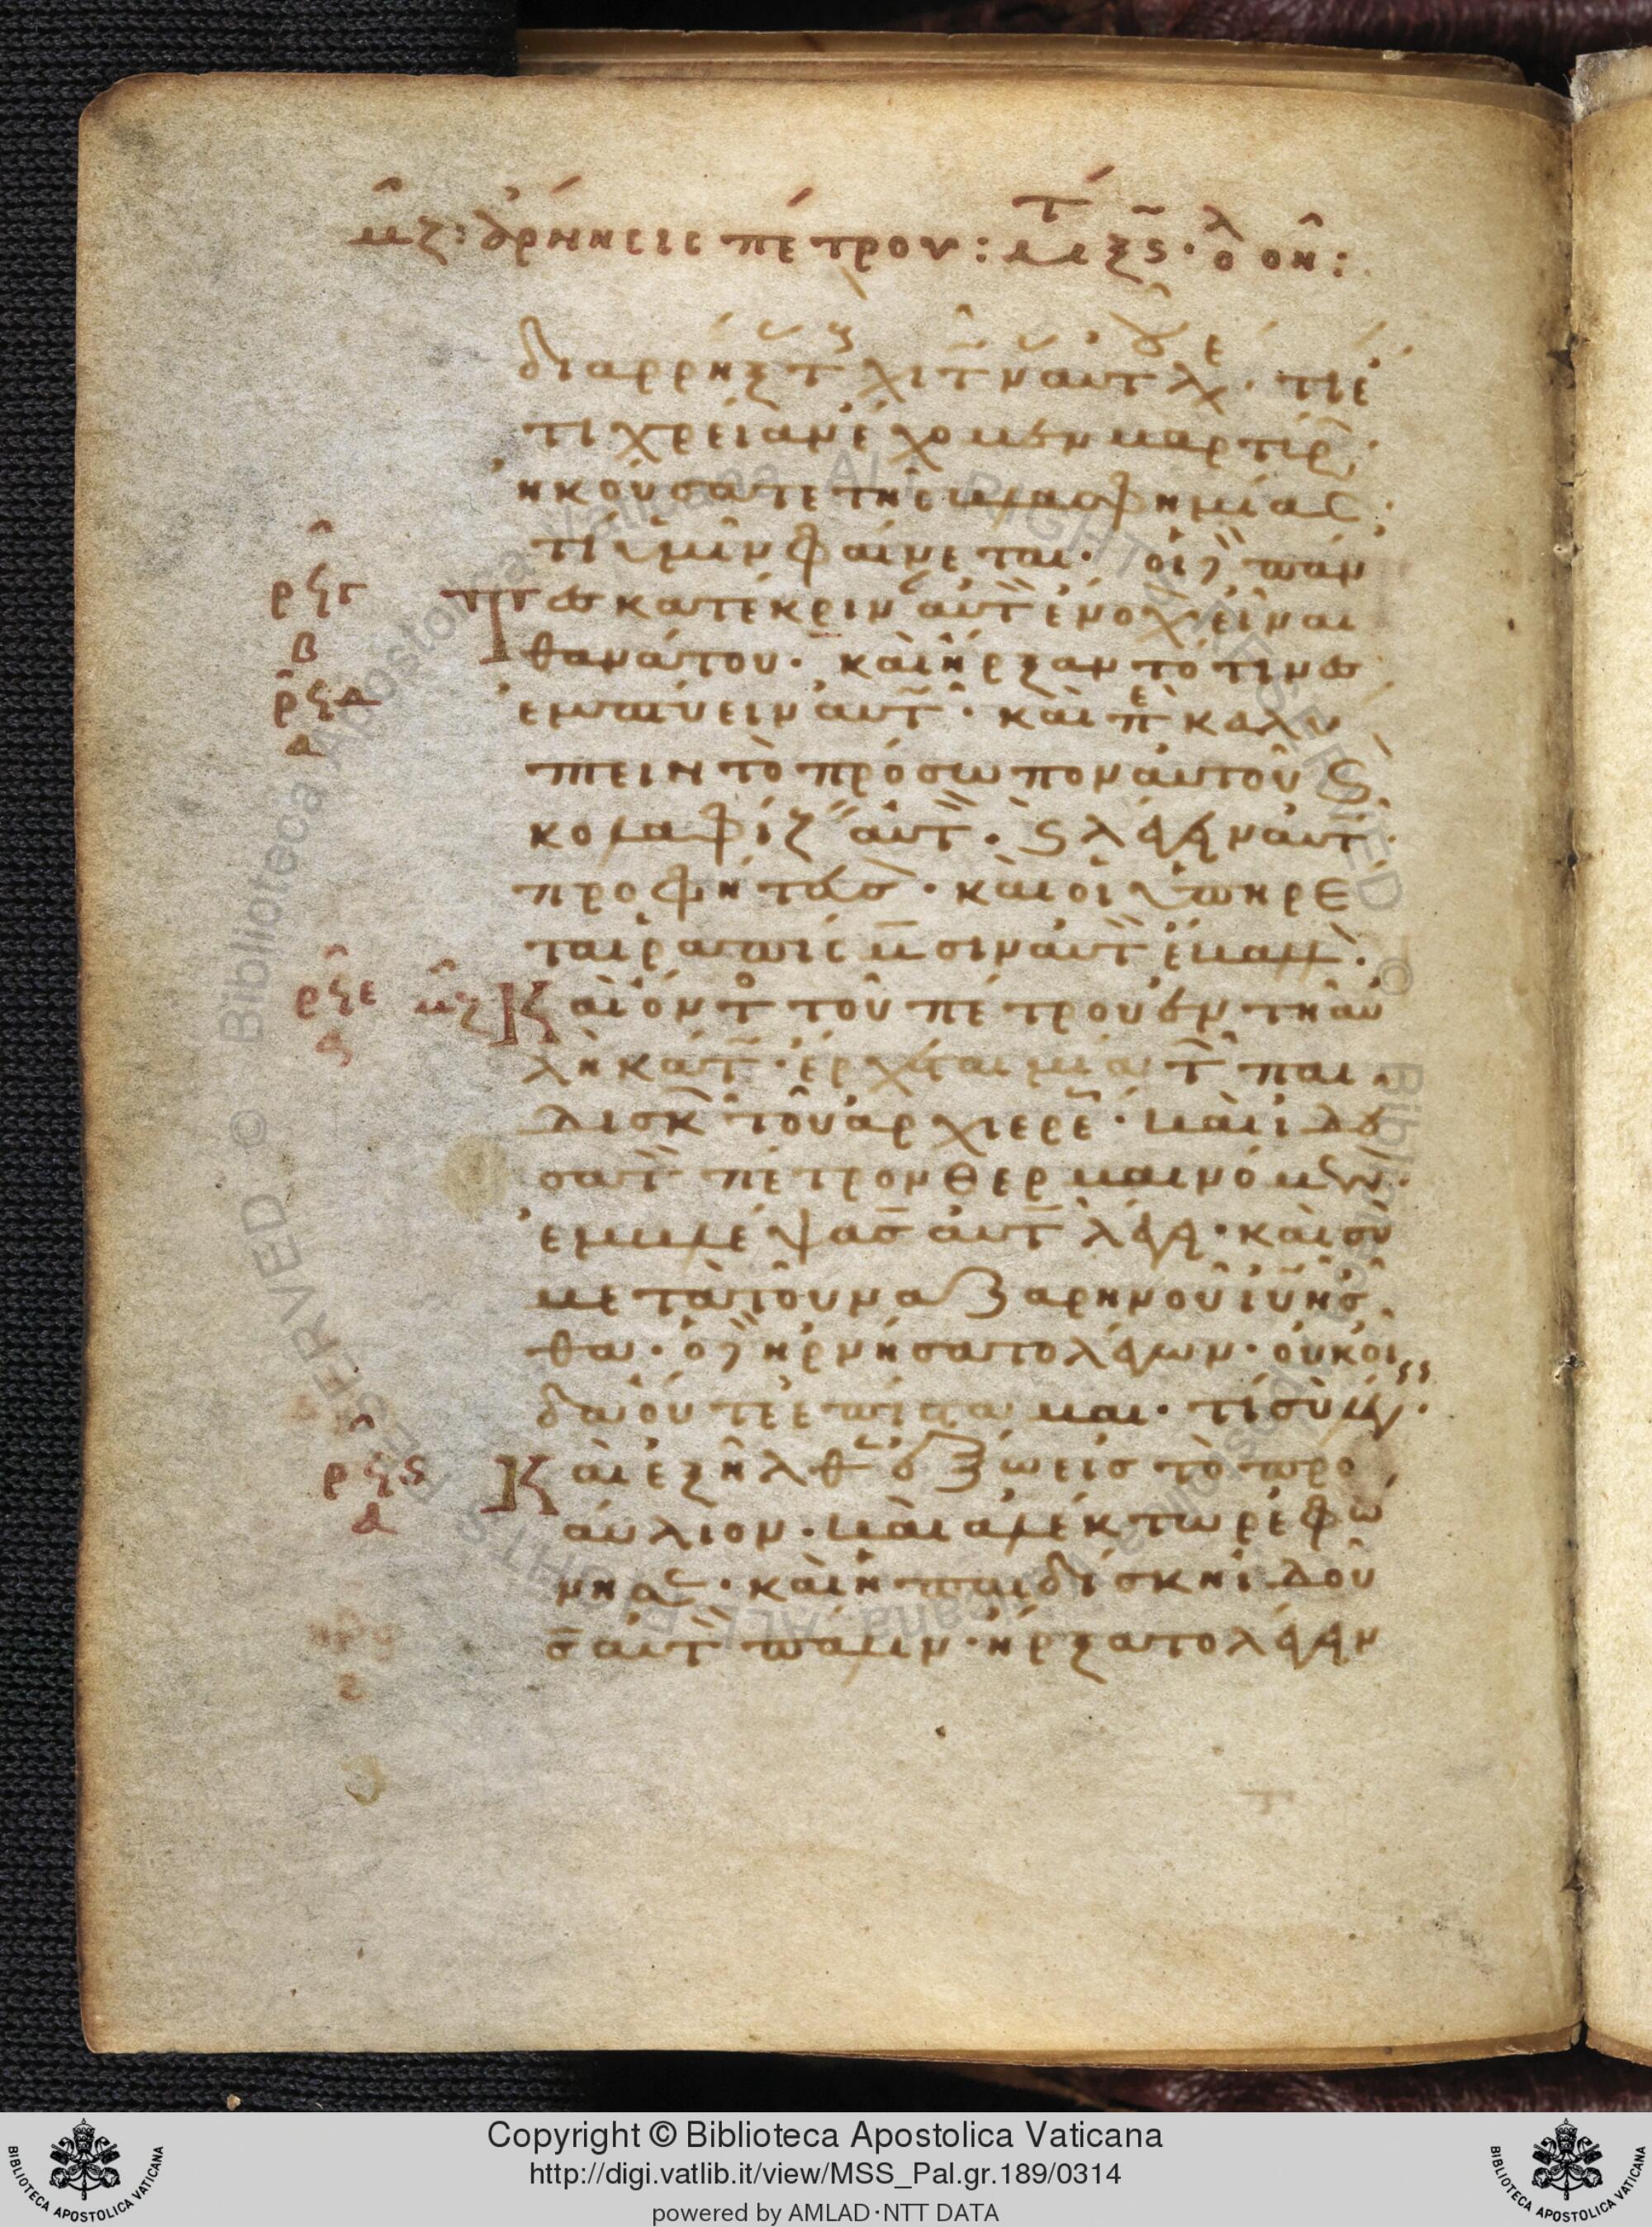 μζ: ἄρνησις πέτρου: μτ ξς· λο ον:
διαρρηξ τ χιτ ν αυτ λγε· τι ἔ
τι χρείαν ἔχομεν μαρτύρ·
ἠκούσατε τῆς βλασφημίας·
τί ὑμῖν φαίνεται· οἱ δὲ πάν
ρϟγ
β
τες κατέκριν αὐτ ἔνοχ εἶναι
θανάτου· καὶ ἤρξαντό τινες
ρϟδ
α
ἐμπτύειν αὐτ· καὶ πε καλύ
πτειν τὸ πρόσωπον αὐτοῦ ϛ
κολαφίζ αὐτ· ϛ λέγειν αὐτ·
προφήτευσ· καὶ οἱ ὑπηρέ
ται ραπίσμασιν αὐτ ἔβαλλ·
ρϟε
ϛ
μζ Καὶ ὄντο τοῦ πέτρου ἐν τῇ αυ
λῇ κάτ· ἔρχεται μία τ παι
δισκ τοῦ ἀρχιερε· καὶ ἰδοῦ
σα τ πέτρον θερμαινόμεν·
ἐμβλέψασ αὐτ λέγει· καὶ σὺ
μετὰ τοῦ ναζαρηνοῦ ιυ ἦσ
θα· ὁ δὲ ἠρνήσατο λέγων· οὐκ οἶ
δα οὔτε ἐπίσταμαι· τί σὺ λέγεις·
ρϟϛ
α
Καὶ ἐξῆλθ ἔξω εἰς τὸ προ
αύλιον· καὶ ἀλέκτωρ ἐφώ
νησε· καὶ ἡ παιδίσκη ἰδοῦ
σ αὐτ πάλιν· ἤρξατο λέγειν
Copyright © Biblioteca Apostolica Vaticana
http://digi.vatlib.it/view/MSS_Pal.gr.189/0314
powered by AMLAD·NTT DATA
BIBLIOTECA APOSTOLICA VATICANA
BIBLIOTECA APOSTOLICA VATICANA